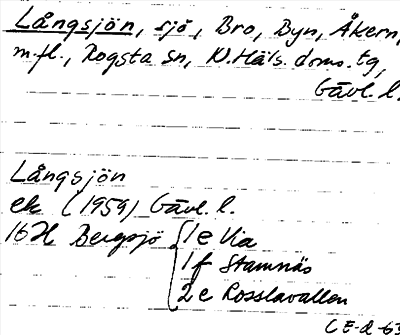 Långsjön, sjö, Bro, Byn, Åkern,
m.fl., Rogsta sn, N.Häls. doms. tg,
Gävl. l.
Långsjön
ek (1959) Gävl. l.
16H Bergsjö 1e Via
1f Stamnäs
2e Rosslavallen
CE-d-63